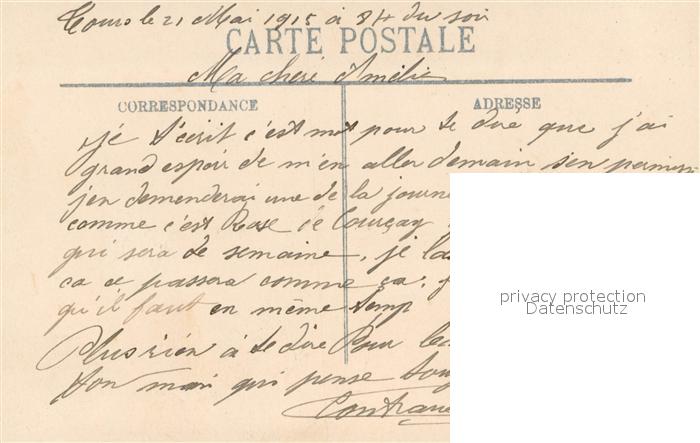 Tours le 21 Mai 1915 à 8H du soir
CARTE POSTALE
Ma cheré Amélie
CORRESPONDANCE
ADRESSE
Je t'écrit c'est mot pour te diré que j'ai
grand espoir de m'en aller demain s'en permis
j'en demenderai une de la journ
comme c'est Rose de Courçay
qui sera de semaine, je
ca ce passera comme ça,
qu'il faut en même temp
Plus rién à te dire Pour
ton mari qui pense
privacy protection
Datenschutz